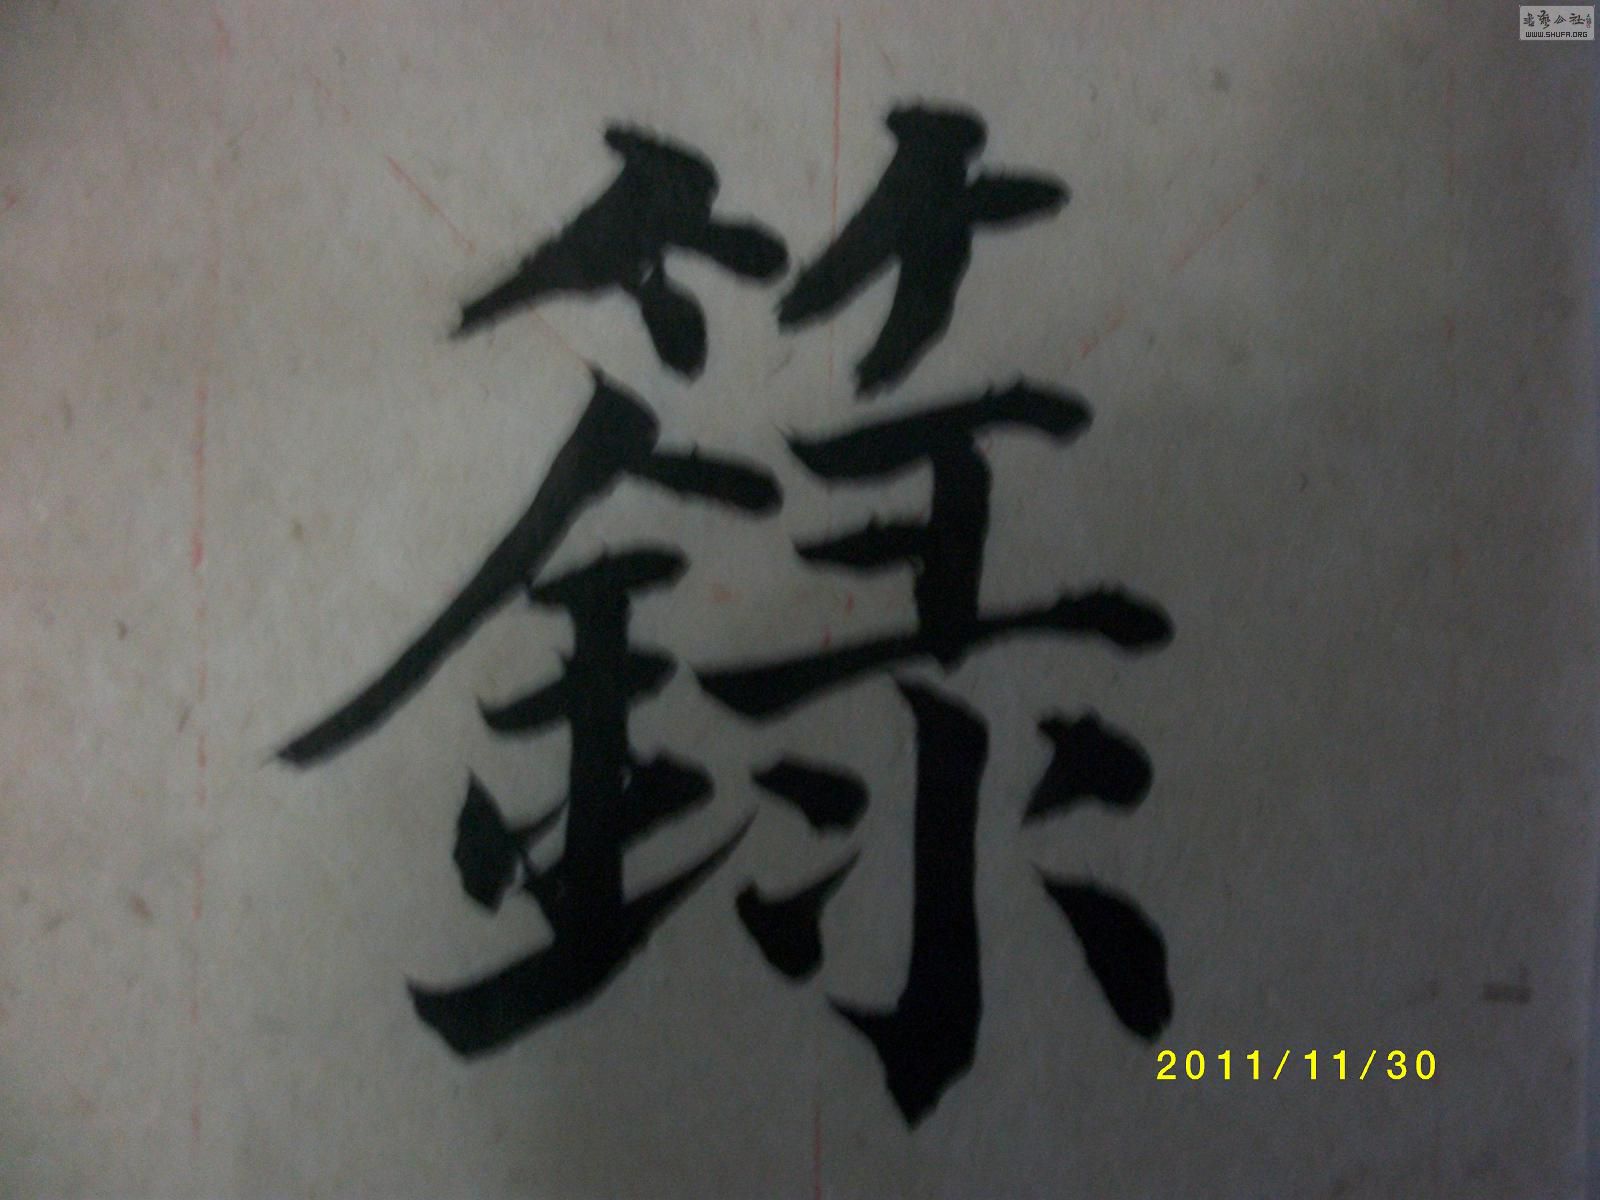 籙
2011/11/30
书艺公社
WWW.SHUFA.ORG